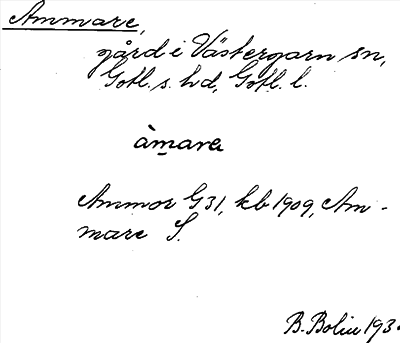 Ammare,
gård i Västergarn sn,
Gotl. s. hd, Gotl. l.
àmara
Ammor G31, kb 1909, Am-
mare S.
B. Bolin 193